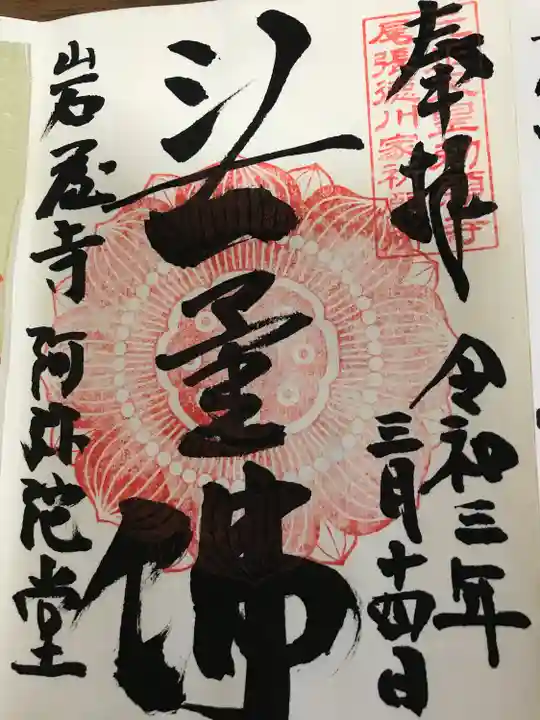 奉拝
尾張徳川家
令和三年
三月十四日
無量佛
岩屋寺 阿弥陀堂